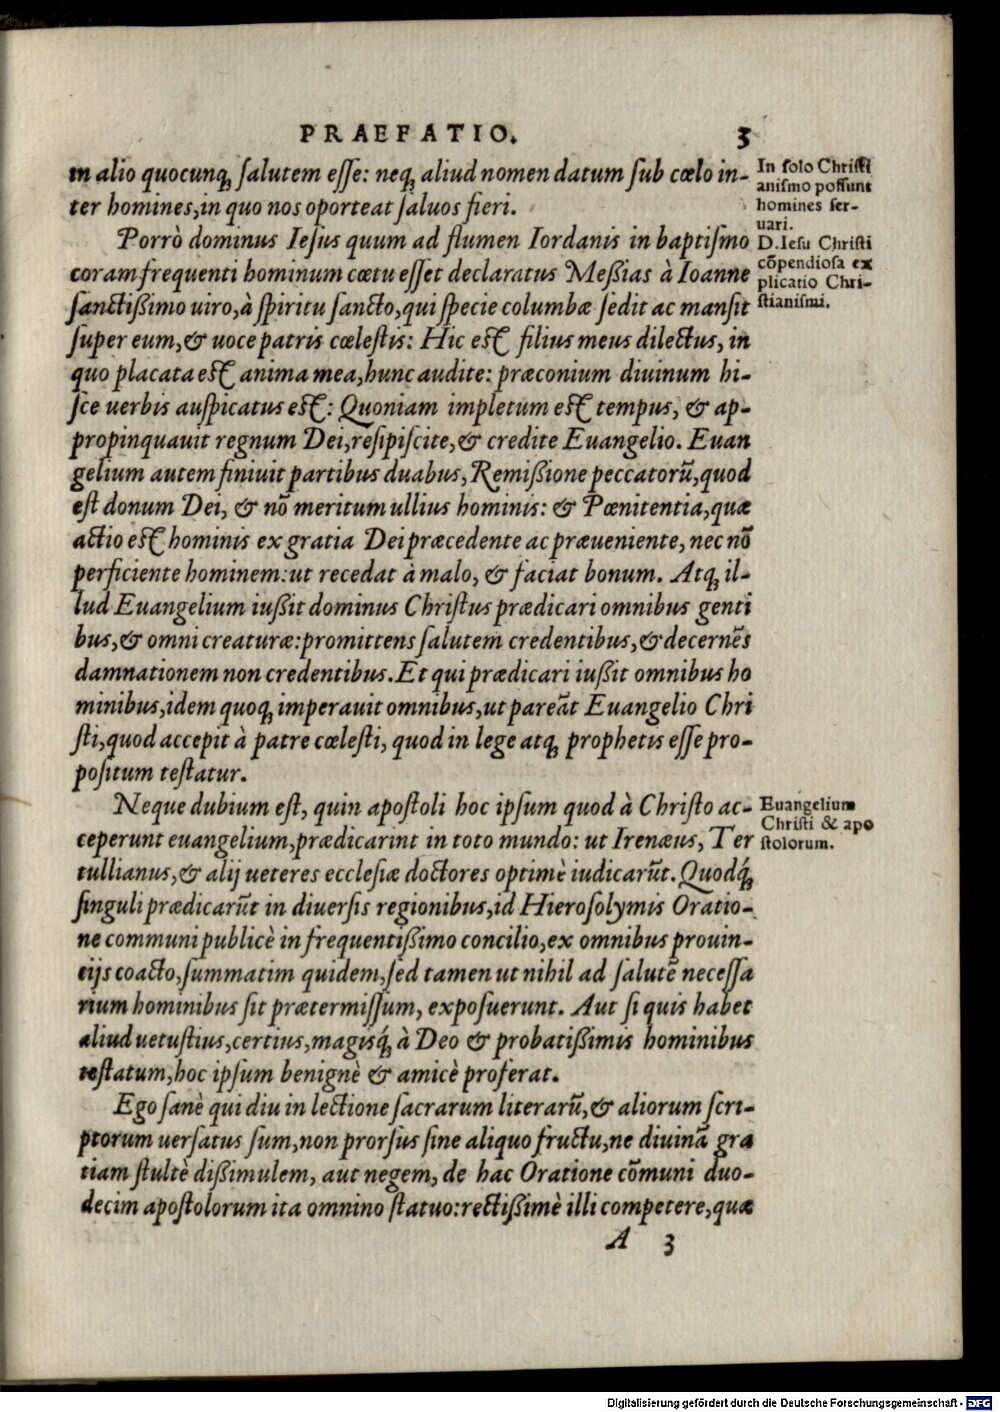 PRAEFATIO. 3
in alio quocunq; salutem esse: neq; aliud nomen datum sub cœlo in-
ter homines, in quo nos oporteat saluos fieri.
In solo Christi
anismo possunt
homines ser-
uari.
Porrò dominus Iesus quum ad flumen Iordanis in baptismo
coram frequenti hominum cœtu esset declaratus Meßias à Ioanne
sanctißimo uiro, à spiritu sancto, qui specie columbæ sedit ac mansit
super eum, & uoce patris cœlestis: Hic est filius meus dilectus, in
quo placata est anima mea, hunc audite: præconium diuinum hi-
sce uerbis auspicatus est: Quoniam impletum est tempus, & ap-
propinquauit regnum Dei, resipiscite, & credite Euangelio. Euan
gelium autem finiuit partibus duabus, Remißione peccatorũ, quod
est donum Dei, & nõ meritum ullius hominis: & Pœnitentia, quæ
actio est hominis ex gratia Dei præcedente ac præueniente, nec nõ
perficiente hominem: ut recedat à malo, & faciat bonum. Atq; il-
lud Euangelium iußit dominus Christus prædicari omnibus genti
bus, & omni creaturæ: promittens salutem credentibus, & decernẽs
damnationem non credentibus. Et qui prædicari iußit omnibus ho
minibus, idem quoq; imperauit omnibus, ut pareãt Euangelio Chri
sti, quod accepit à patre cœlesti, quod in lege atq; prophetis esse pro-
positum testatur.
D. Iesu Christi
cõpendiosa ex
plicatio Chri-
stianismi.
Neque dubium est, quin apostoli hoc ipsum quod à Christo ac-
ceperunt euangelium, prædicarint in toto mundo: ut Irenæus, Ter
tullianus, & alij ueteres ecclesiæ doctores optimè iudicarũt. Quodq́;
singuli prædicarũt in diuersis regionibus, id Hierosolymis Oratio-
ne communi publicè in frequentißimo concilio, ex omnibus prouin-
cijs coacto, summatim quidem, sed tamen ut nihil ad salutẽ necessa
rium hominibus sit prætermissum, exposuerunt. Aut si quis habet
aliud uetustius, certius, magisq́; à Deo & probatißimis hominibus
testatum, hoc ipsum benignè & amicè proferat.
Euangelium
Christi & apo
stolorum.
Ego sanè qui diu in lectione sacrarum literarũ, & aliorum scri-
ptorum uersatus sum, non prorsus sine aliquo fructu, ne diuinã gra
tiam stultè dißimulem, aut negem, de hac Oratione cõmuni duo-
decim apostolorum ita omnino statuo: rectißimè illi competere, quæ
A 3
Digitalisierung gefördert durch die Deutsche Forschungsgemeinschaft - DFG